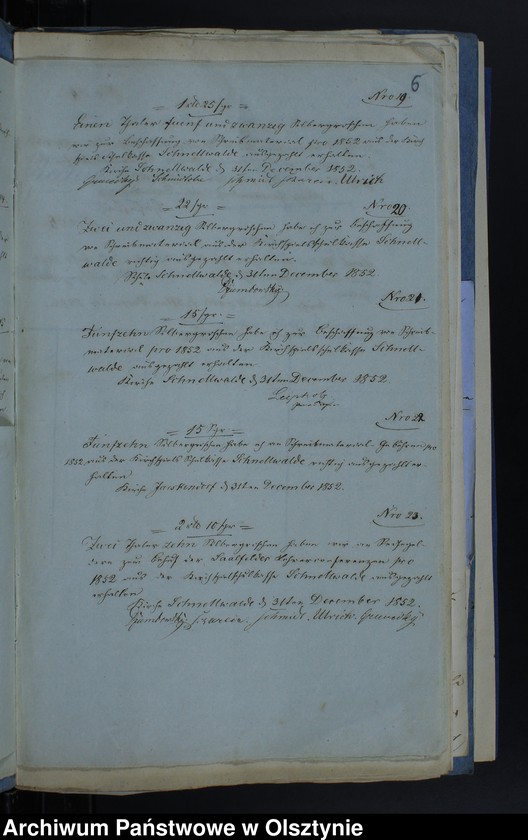 6
Nro 19
= 1 rtlr 25 sgr =
Einen Thaler fuenf und zwanzig Silbergroschen haben
wir zur Beschaffung von Schreibmaterial pro 1852 aus der Kirch
spielsschulkasse Schnellwalde ausgezahlt erhalten.
Kirche Schnellwalde d 31ten December 1852.
Schmidt Ulrich
= 22 sgr = Nro 20.
Zwei und zwanzig Silbergroschen habe ich zur Beschaffung
von Schreibmaterial aus der Kirchspielsschulkasse Schnell-
walde richtig ausgezahlt erhalten.
Schnellwalde d 31ten December 1852
Nro 21.
= 15 sgr. =
Fünfzehn Silbergroschen habe ich zur Beschaffung von Schreib-
material pro 1852 aus der Kirchspielsschulkasse Schnell-
walde ausgezahlt erhalten
Kirche Schnellwalde d 31ten December 1852.
Nro 22
= 15 Sgr. =
Fünfzehn Silbergroschen habe ich an Schreibmaterial-Gebühren pro
1852 aus der Kirchspiels Schulkasse Schnellwalde richtig ausgezahlt er-
halten
d 31ten December 1852.
Nro 23.
= 2 rtlr 10 sgr =
Zwei Thaler zehn Silbergroschen haben wir an
dern zum Behuf der Saalfelder Lehrerconferenzen pro
1852 aus der Kirchspielsschulkasse Schnellwalde ausgezahlt
erhalten
Kirche Schnellwalde d 31ten December 1852.
Schmidt. Ulrich.
Archiwum Państwowe w Olsztynie